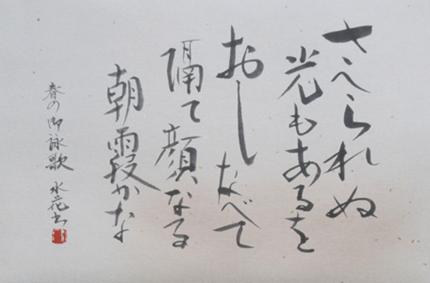 さへられぬ
光もあるを
おしなべて
隔て顔なる
朝霞かな
春の御詠歌 水花書